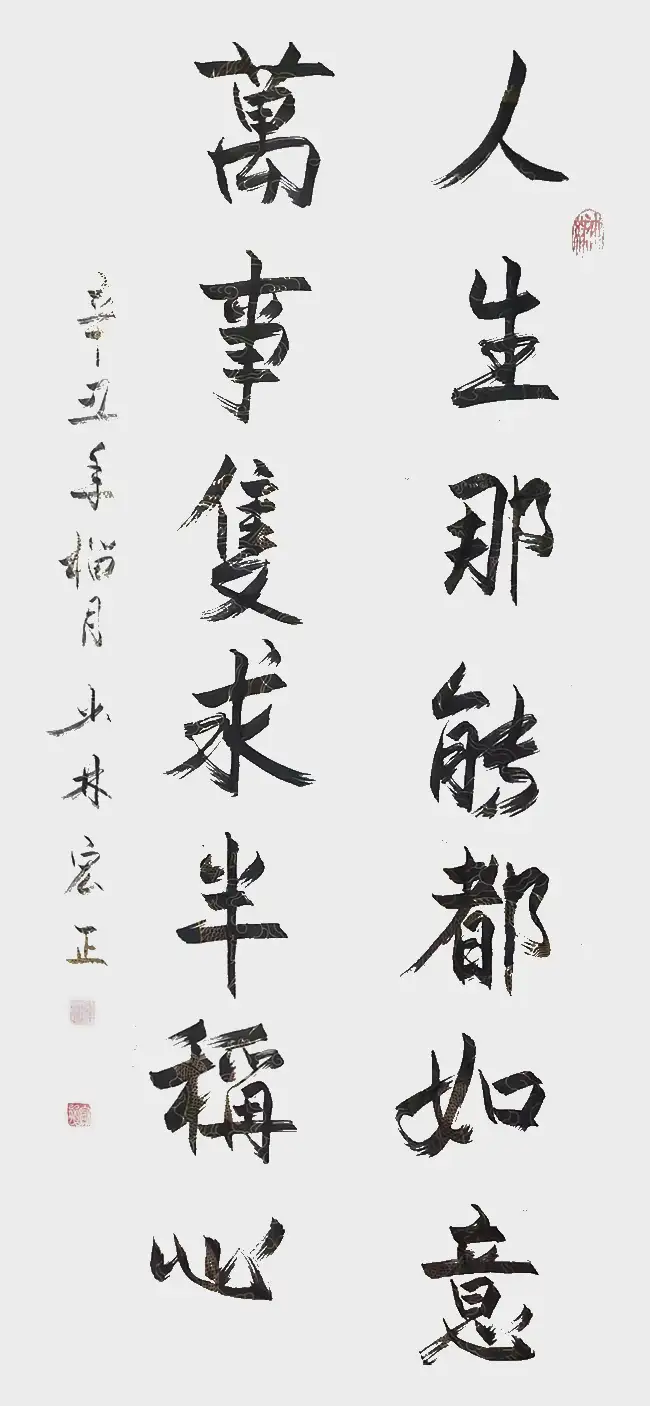 人生那能都如意
萬事隻求半稱心
辛丑年榴月少林宏正